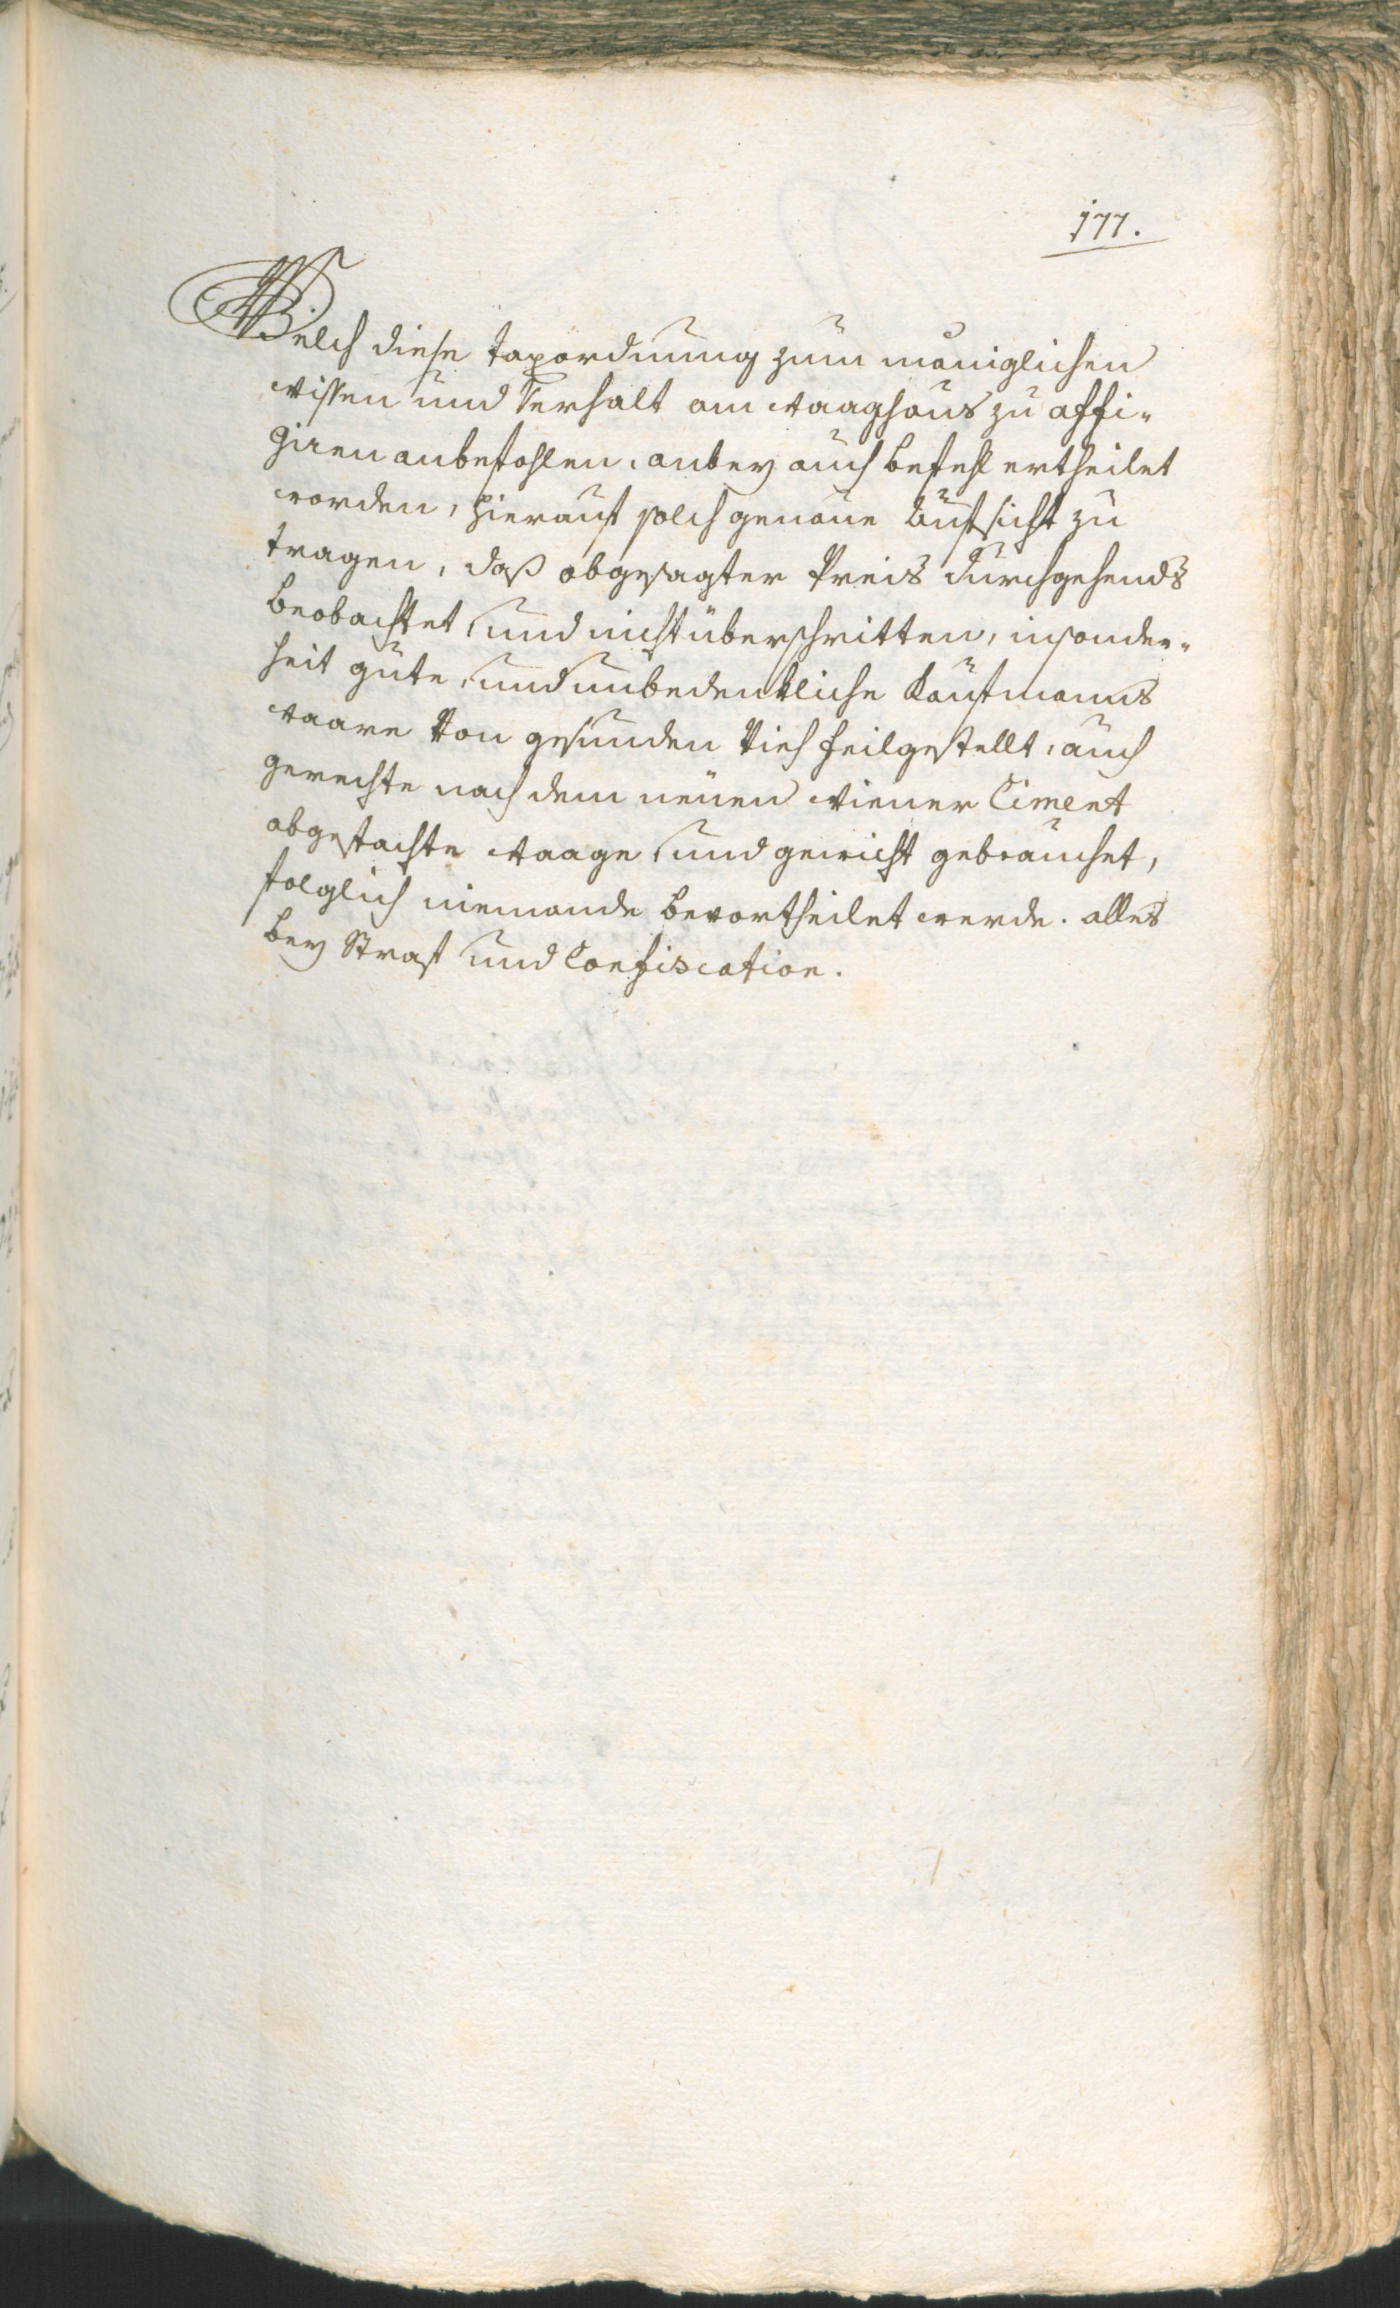 177.
Welch diese Taxordnung zum mäniglichen
wissen und Verhalt am waaghaus zu affi-
giren anbefohlen, anbey auch befehl ertheilet
worden, hierauf solch genaue Aufsicht zu
tragen, daß obgesagter Preis durchgehends
beobachtet, und nicht überschritten, insonder-
heit gute, und unbedenkliche Kaufmanns
waare von gesunden Vieh feilgestellt, auch
gerechte nach dem neuen wiener Ciment
abgefachte waage, und gewicht gebrauchet,
folglich niemande bevortheilet werde. alles
bey Straf und Confiscation.